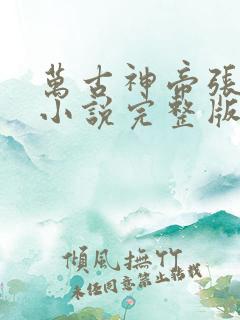 萬古神帝張
小說完整版
傾風撫竹
未经同意禁止转载